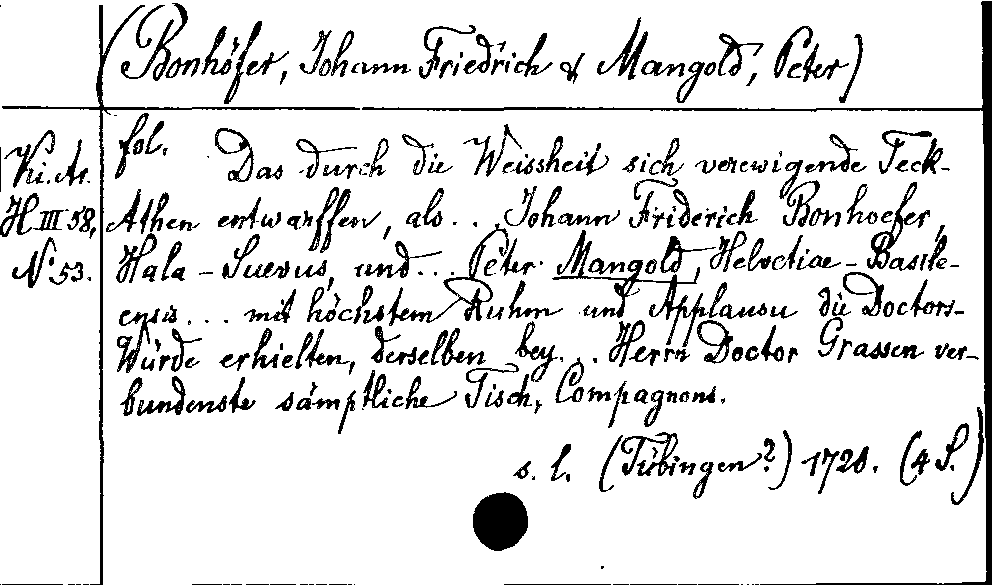 (Bonhöfer, Johann Friedrich & Mangold, Peter)
Ki. Ar.
H III 58,
No 53.
fol. Das durch die Weissheit sich verewigende Teck-
Athen entwarffen, als .. Johann Friderich Bonhoefer,
Hala-Suevus, und ... Peter Mangold, Helvetiae-Basile-
ensis ... mit höchstem Ruhm und Applausu die Doctors-
Würde erhielten, derselben bey ... Herrn Doctor Grassen ver-
bundenste sämptliche Tisch, Compagnons.
s. l. (Tübingen?) 1720. (4 S.)